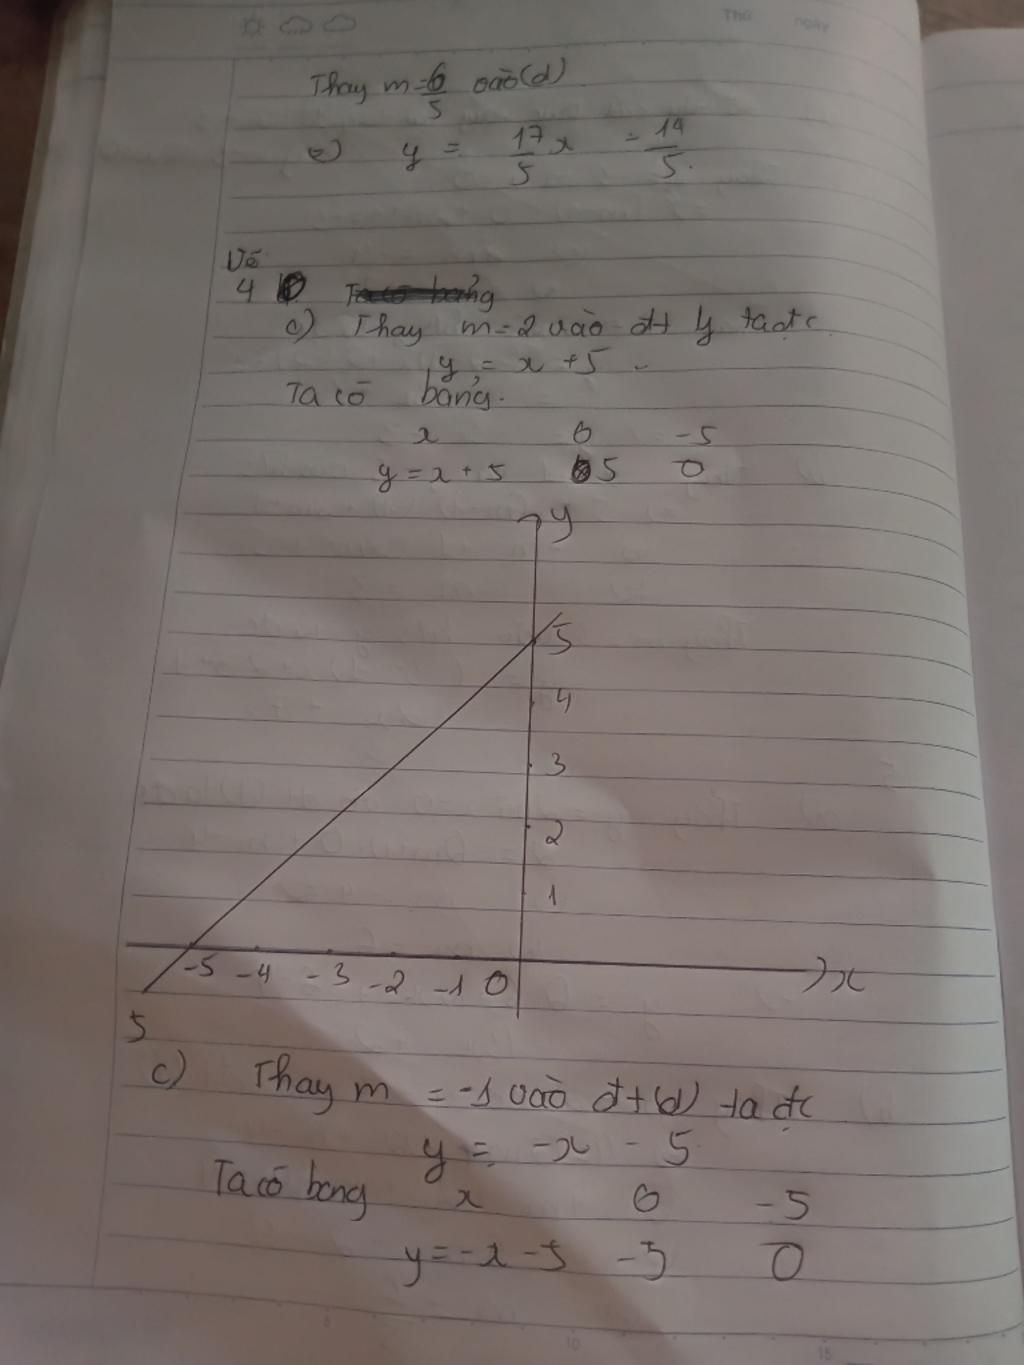 Thứ ngày
Thay m=6/5 vào(d)
=) y = 17/5 x - 14/5.
Vẽ
4
c) Thay m=2 vào đt y ta đc
y = x +5
Ta có bảng.
x 0 -5
y = x + 5 5 0
y
5
4
3
2
1
-5 -4 -3 -2 -1 0 x
5
c) Thay m = -1 vào đt(d) ta đc
y = -x - 5
Ta có bang x 0 -5
y = -x -5 -5 0
10 15